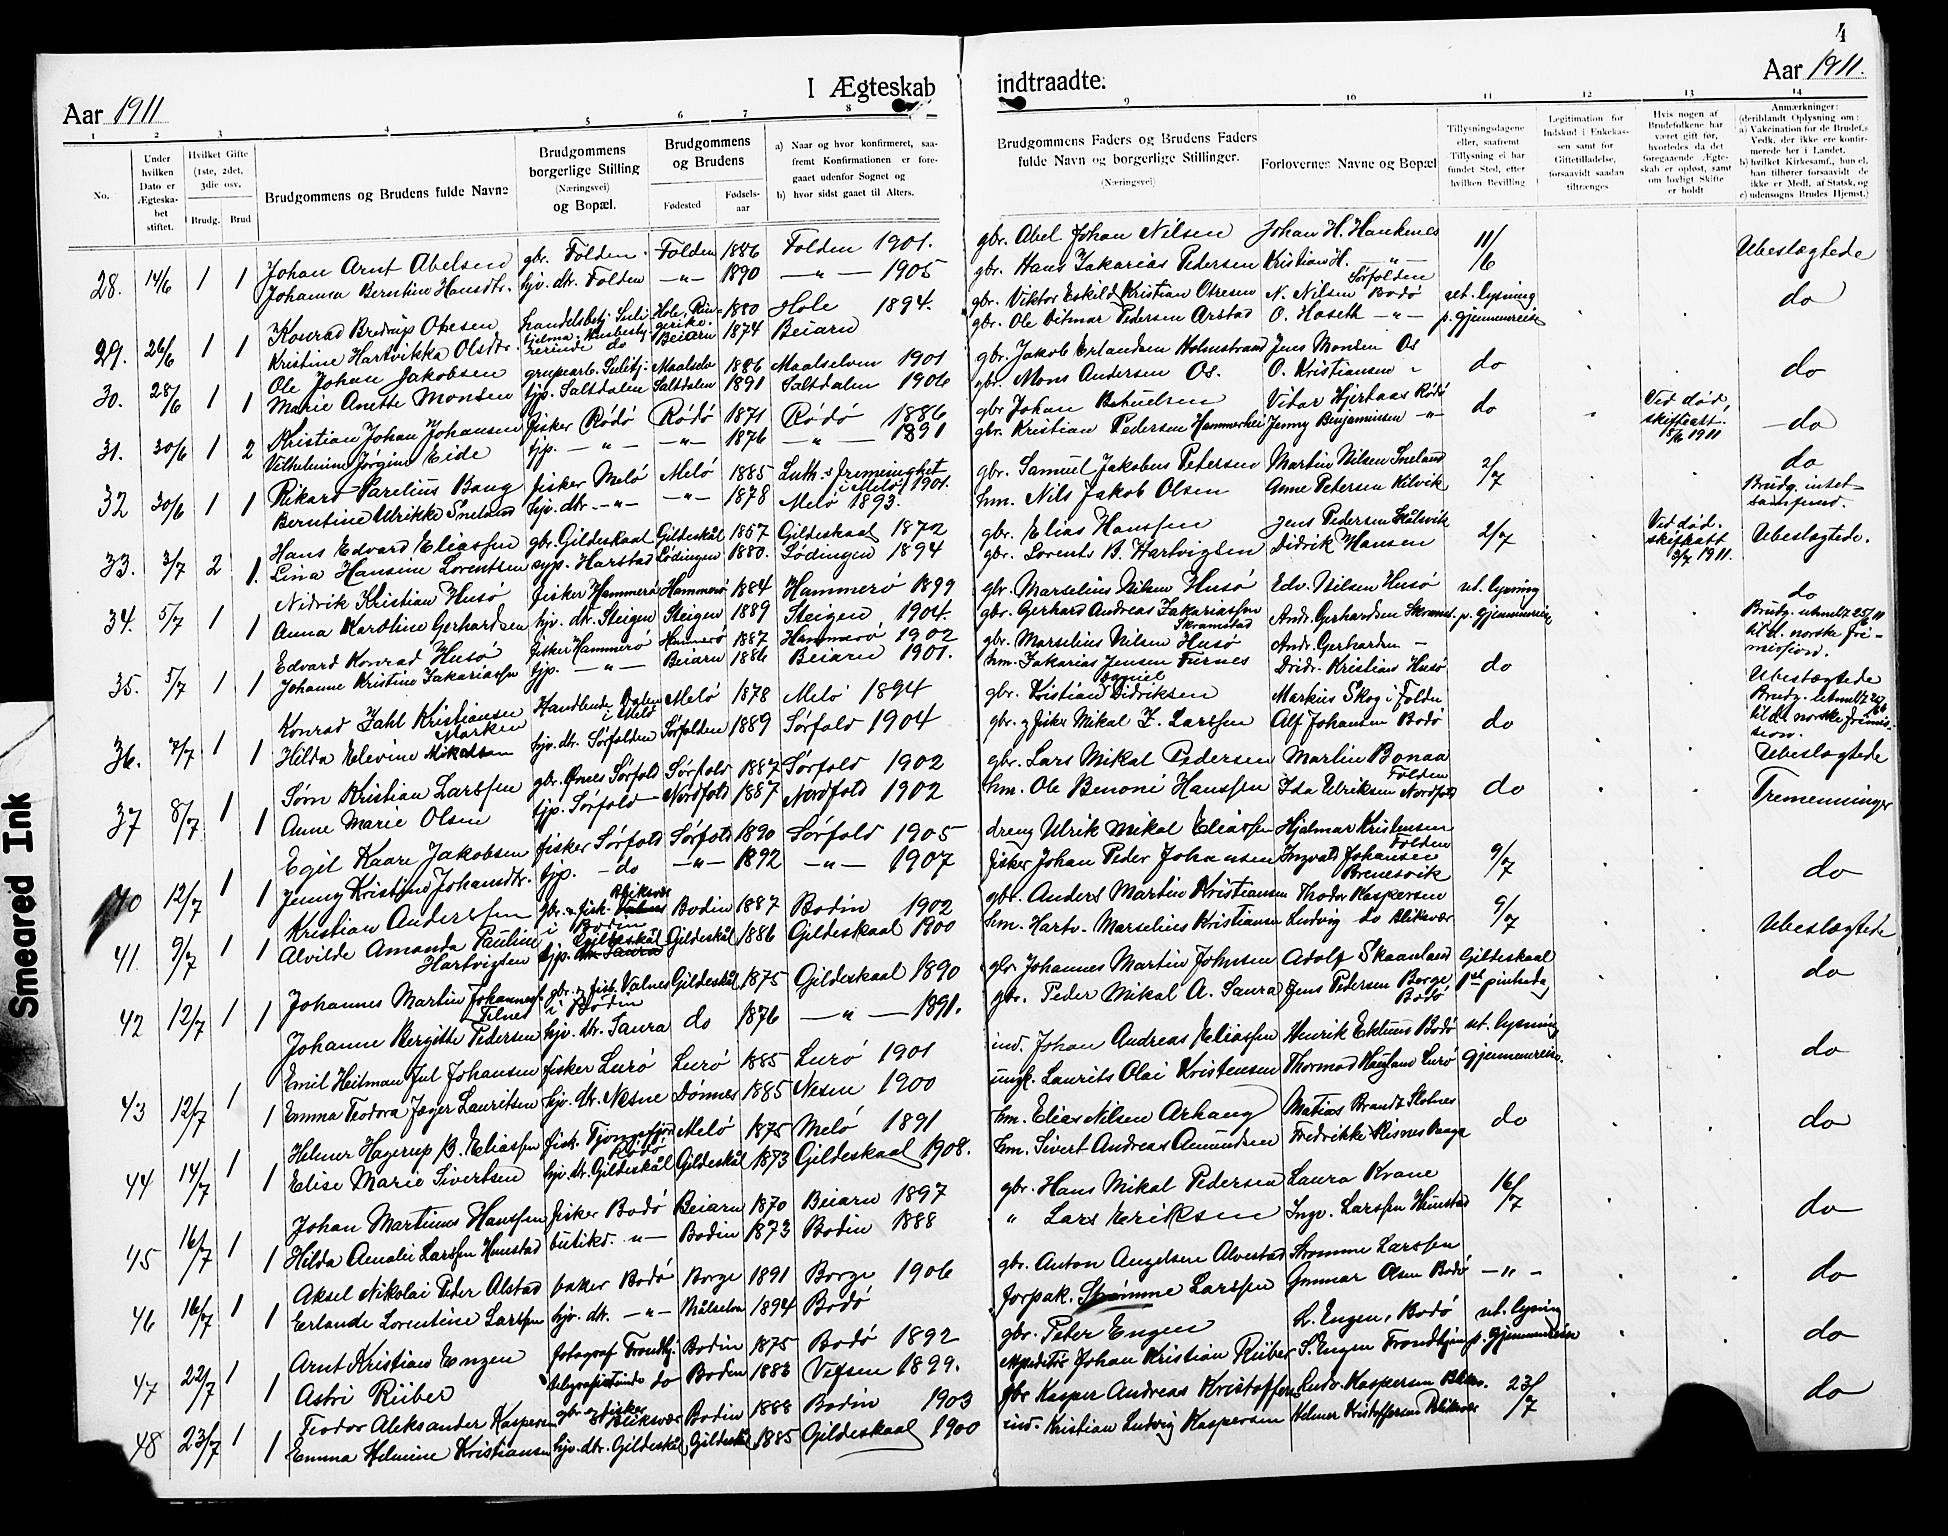 4
Aar 1911
I Ægteskab indtraadte.
Aar 1911.
1 2 3 4 5 6 7 8 9 10 11 12 13 14
No.
Under hvilken Dato er Ægteska-bet stiftet.
Hvilket Gifte (1ste, 2det, 3die osv.
Brudg. Brud
Brudgommens og Brudens fulde Navne
Brudgommens borgerlige Stilling (Næringsvei) og Bopæl.
Brudgommens og Brudens
Fødested Fødsels-aar
a) Naar og hvor konfirmeret, saa-fremt Konfirmationen er fore-gaaet udenfor Sognet og
b) hvor sidst gaaet til Alters.
Brudgommens Faders og Brudens Faders fulde Navn og borgerlige Stillinger.
(Næringsvei)
Forlovernes Navne og Bopæl
Tillysningsdagene eller, saafremt Tillysning ei har fundet Sted, efter hvilken Bevilling
Legitimation for Indskud i Enkekas-sen samt for Giftetilladelse, forsaavidt saadan tiltrænges
Hvis nogen af Brudefolkene har været gift før, hvorledes da det foregaaende Ægte-skab er opløst, samt om lovligt Skifte er holdt
Anmærkninger: (deriblandt Oplysning om:
a) Vakcination for de Brudef.s Vedk. der ikke ere konfir-merede her i Landet.
b) hvilket Kirkesamf., hun el. han tilhører forsaavidt de ikke er Medl. af Statsk. og
c) udensogns Brudes Hjemst.)
28. 14/6 1 1 Johan Arnt Abelsen gbr. Folden Folden 1886 Folden 1901. gbr. Abel Johan Nilsen Johan H. Hankenes 11/6 Ubeslægtede
Johanna Berntine Hansdtr. hjv. dtr. Folden -"- 1890 -"- 1905 gbr. Hans Zakarias Pedersen Kristian H. -"- Sørfolden
29. 26/6 1 1 Konrad Bredrup Olsen handelsbetj. Suli- Hole, Rin-gerike. 1880 Hole 1894. gbr. Viktor Eskild Kristian N. Nilsen Bodø ut. lysning do
Kristine Hartvikka Olsdtr. do Beiarn 1874 Beiarn gbr. Ole Ditmar Pedersen Arstad O. Haseth -"- p. gjennemreise
30. 28/6 1 1 Ole Johan Jakobsen grubearb. Sulitj. Maalselv 1886 Maalselven 1901 gbr. Jakob Erlandsen Holmstrand Jens Monsen Os do do
Marie Anette Monsen tjp. Saltdalen Saltdalen 1891 Saltdalen 1906 gbr. Mons Andersen Os. O. Kristiansen "
31. 30/6 1 2 Kristian Johan Johansen fisker Rødø Rødø 1871 Rødø 1886 gbr. Johan Vidar Hjertaas Rødø do Ved død, skifteatt. 15/6 1911 do
Vilhelmine Jørgine Eide tjp. -"- -"- 1876 -"- 1891 gbr. Kristian Pedersen Jenny Benjaminsen -"-
32 30/6 1 1 Rikard Parelius Bang fisker Melø Melø 1885 Luth. fremenighet i Melø 1901. gbr. Samuel Jakobus Petersen Martin Nilsen Sneland 2/7 do
Berntine Ulrikke Sneland hjv. dtr. -"- -"- 1878 Melø 1893. hm. Nils Jakob Olsen Anne Petersen Kilvik Brudg. intet samfund.
33. 3/7 2 1. Hans Edvard Eliassen gbr. Gildeskaal Gildeskål 1857 Gildeskaal 1872 gbr. Elias Hanssen Jens Pedersen 2/7 Ved død. skifteatt 3/7 1911. Ubeslægtede.
Lina Hansine Lorentsen syp. Harstad Lødingen 1880. Lødingen 1894 gbr. Lorents B. Hartvigsen Didrik Hansen
34. 5/7 1 1 Nidrik Kristian Husø fisker Hammerø Hammerø 1884 Hammerø 1899 gbr. Marselius Nilsen Husø Edv. Nilsen Husø ut. lysning do
Anna Karoline Gerhardsen hjv. dtr. Steigen Steigen 1889 Steigen 1904. gbr. Gerhard Andreas Zakariassen Skramstad Andr. Gerhardsen Skramst. p. gjennemreise Brudg. utmeldt 25/6 11 til d. norske fri-mission.
35. 5/7 1 1 Edvard Konrad Husø fisker Hammerø Hammerø 1887 Hammerø 1902 gbr. Marselius Nilsen Husø Andr. Gerhardsen - do
Johanne Kristine Zakariassen tjp. -"- Beiarn 1886 Beiarn 1901. hm. Zakarias Jensen Furnes Didr. Kristian Husø Ubeslægtede
36. 7/7 1 1 Konrad Dahl Kristiansen Marken Handlende i Melø Melø 1878 Melø 1894 gbr. Kristian Daniel Didriksen Markus Skog i Folden do Brudg. utmeldt til de norske frimis-sion.
Hilda Elevine Mikalsen hjv. dtr. Sørfolden Sørfolden 1889 Sørfold 1904 gbr. og fisker Mikal Z. Larssen Alf Johansen Bodø
37 8/7 1 1 Sørn Kristian Larssen gbr. Sørfold Sørfold 1887 Sørfold 1902 gbr. Lars Mikal Pedersen Martin Bonaa Folden do Ubeslægtede
Anne Marie Olsen tjp. Sørfold Nordfold 1887 Nordfold 1902 hm. Ole Benoni Hanssen Ida Ulriksen Nordfold Tremenninger
40 12/7 1 1 Egil Kaare Jakobsen fisker Sørfold Sørfold 1890 Sørfold 1905 dreng Ulrik Mikal Eliassen Hjalmar Kristensen Folden 9/7 do
Jenny Kristine Johansdtr. tjp. - do -"- 1892 -"- 1907 fisker Johan Peder Johansen Ingvald Johansen
41. 9/7 1 1 Kristian Anderssen gbr. & fisk. i Bodin Bodin 1887 Bodin 1902 gbr. Anders Martin Kristiansen Thodor Kaspersen 9/7 Ubeslægtede
Alvilde Amanda Pauline Hartvigsen tjp. Gildeskål Gildeskål 1886 Gildeskaal 1900 hm. Hartv. Marselius Kristiansen Ludvig do Bliksvær
42 12/7 1 1 Johannes Martin Johannes. gbr. & fisk. Valnes i Bodin Gildeskål 1875 Gildeskaal 1890 gbr. Johannes Martin Johnsen Adolf Skaanland Gildeskaal do
Johanne Bergitte Pedersen hjv. dtr. Saura do 1876 -"- 1891. gbr. Peder Mikal A. Saura Jens Pedersen Borge Bodø 1ste pintsedag
43 12/7 1 1 Emil Heitman Jul Johansen fisker Lurø Lurø 1885 Lurø 1901 ind. Johan Andreas Eliassen Henrik Eklund Bodø ut. lysning do
Emma Teodora Jæger Lauritsen hjv. dtr. Nesne Dønnes 1885 Nesne 1900 ungk. Laurits Olai Kristensen Thormod Haugland Lurø gjennemreise.
44 14/7 1 1 Helmer Hagerup B. Eliassen fisk. Tjongsfjord Rødø Melø 1875 Melø 1891 hm. Elias Nilsen Arhaug Matias Brandt do do
Elise Marie Sivertsen hjv. dtr. Gildeskål Gildeskål 1873 Gildeskaal 1908. hm. Sivert Andreas Amundsen Fredrikke
45 16/7 1 1 Johan Martinus Hanssen fisker Bodø Beiarn 1870 Beiarn 1897 gbr. Hans Mikal Pedersen Laura Krane 16/7 do
Hilda Amalie Larssen Hunstad butikd. -"- Bodin 1873 Bodin 1888 " Lars Eriksen Ingv. Larssen Hunstad
46 16/7 1 1 Aksel Nikolai Peder Alstad baker Bodø Borge 1891 Borge 1906 gbr. Anton Angelsen Alvestad Strømme Larssen -"- do
Erlande Lorentine Larssen hjv. dtr. -"- Målselv 1894 Bodø forpak. Strømme Larssen Gunnar Olsen Bodø
47 22/7 1 1 Arnt Kristian Engen fotograf Trondhj. Bodin 1875 Bodø 1892 gbr. Peter Engen L. Engen, Bodø ut. lysning do
Astri Riiber telegrafistinde do Boden 1883 Vefsen 1899. ekspeditør Johan Kristian Riiber S. Engen Trondhjem p. gjennemreise
48 23/7 1 1 Teodor Aleksander Kaspersen gbr. og fisker Bliksvær Bodin 1888 Bodin 1903 gbr. Kasper Andreas Kristoffers. Ludv. Kaspersen 23/7 do
Emma Helmine Kristiansen hjv. dtr. Gildeskål Gildeskål 1885 Gildeskaal 1900 ind. Kristian Ludvig Kaspersen Helmer Kristoffersen Bliksvær
Smeared Ink